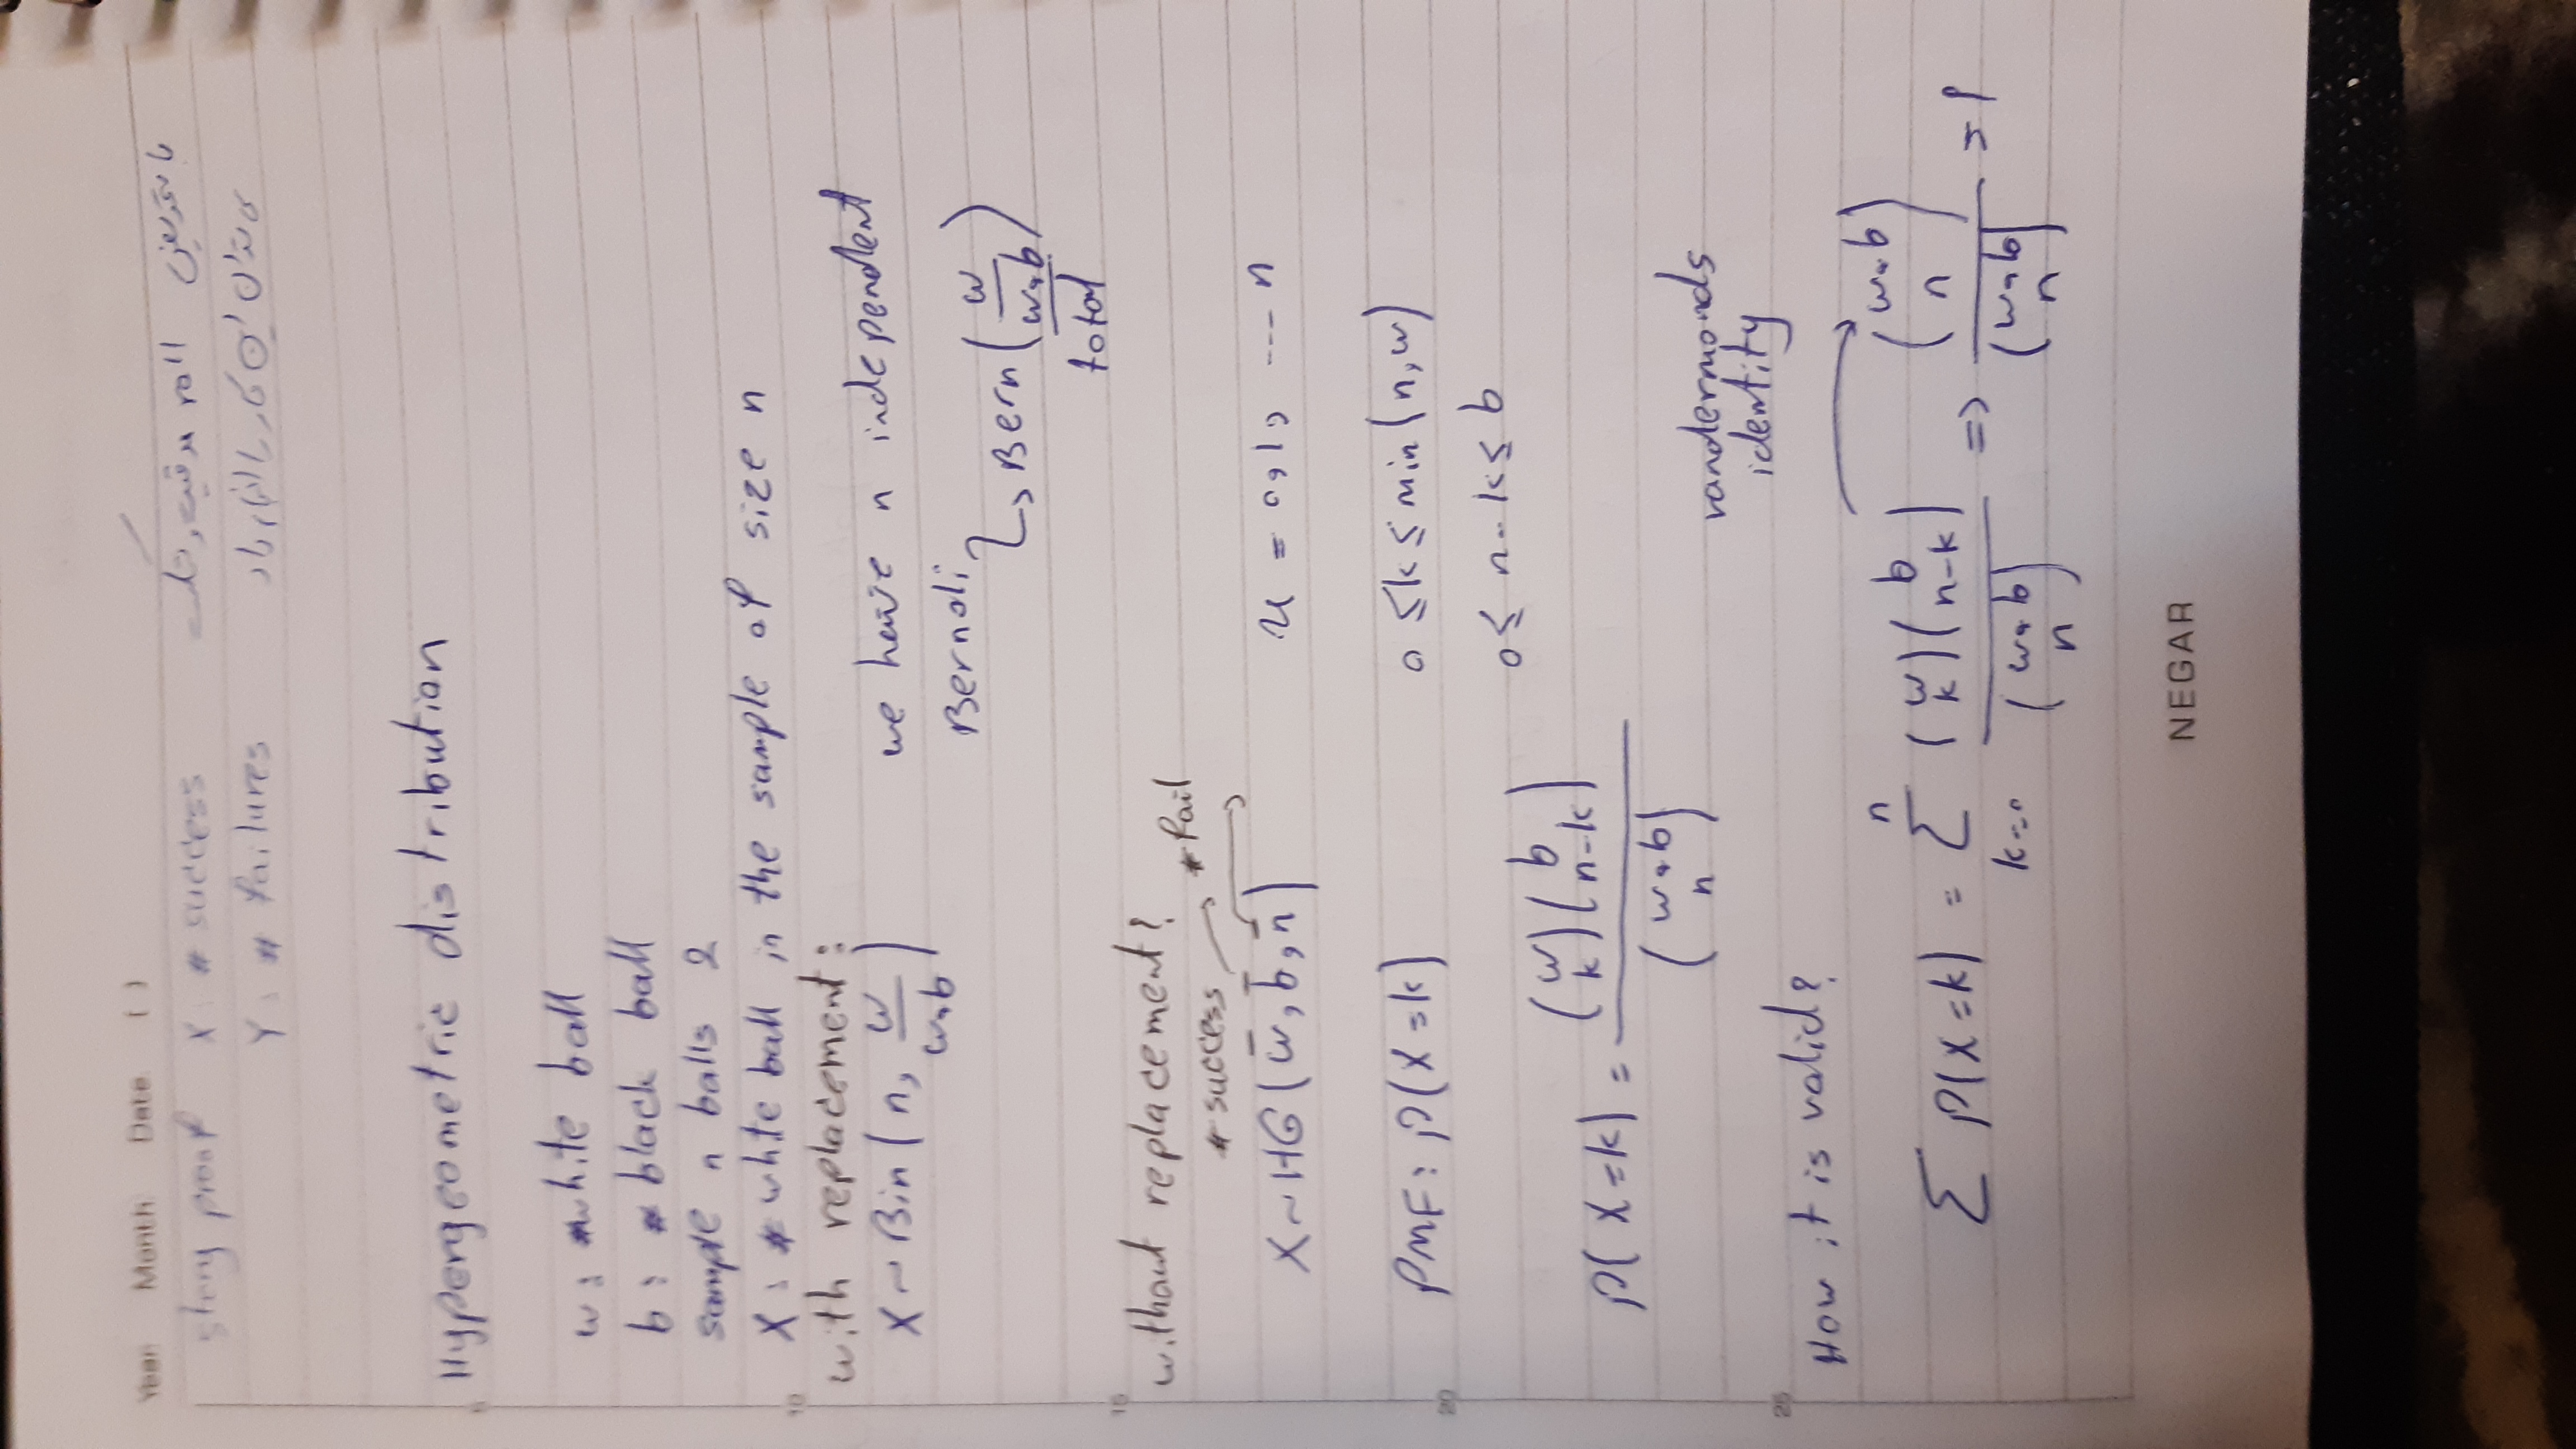 Year Month Date ( )
story proof X : # success با تعویض roll موفقیت و شکست
Y : # failures می توان این کار را انجام داد
Hypergeometric distribution
w : #white ball
b : # black ball
sample n balls 2
X : # white ball in the sample of size n
with replacement :
X ~ Bin ( n, w/(w+b) ) we have n independent
Bernoli ↳ Bern ( w/(w+b) )
total
without replacement ?
# success → # fail
X ~ HG ( w, b, n ) → x = 0, 1, ... n
PMF : P(X=k) 0 ≤ k ≤ min(n,w)
0 ≤ n-k ≤ b
P(X=k) = (w k)(b n-k) / (w+b n)
vandermonds
identity
How it is valid ?
Σ P(X=k) = Σ n k=0 (w k)(b n-k) / (w+b n) => (w+b n) / (w+b n) = 1
5
10
15
20
25
NEGAR